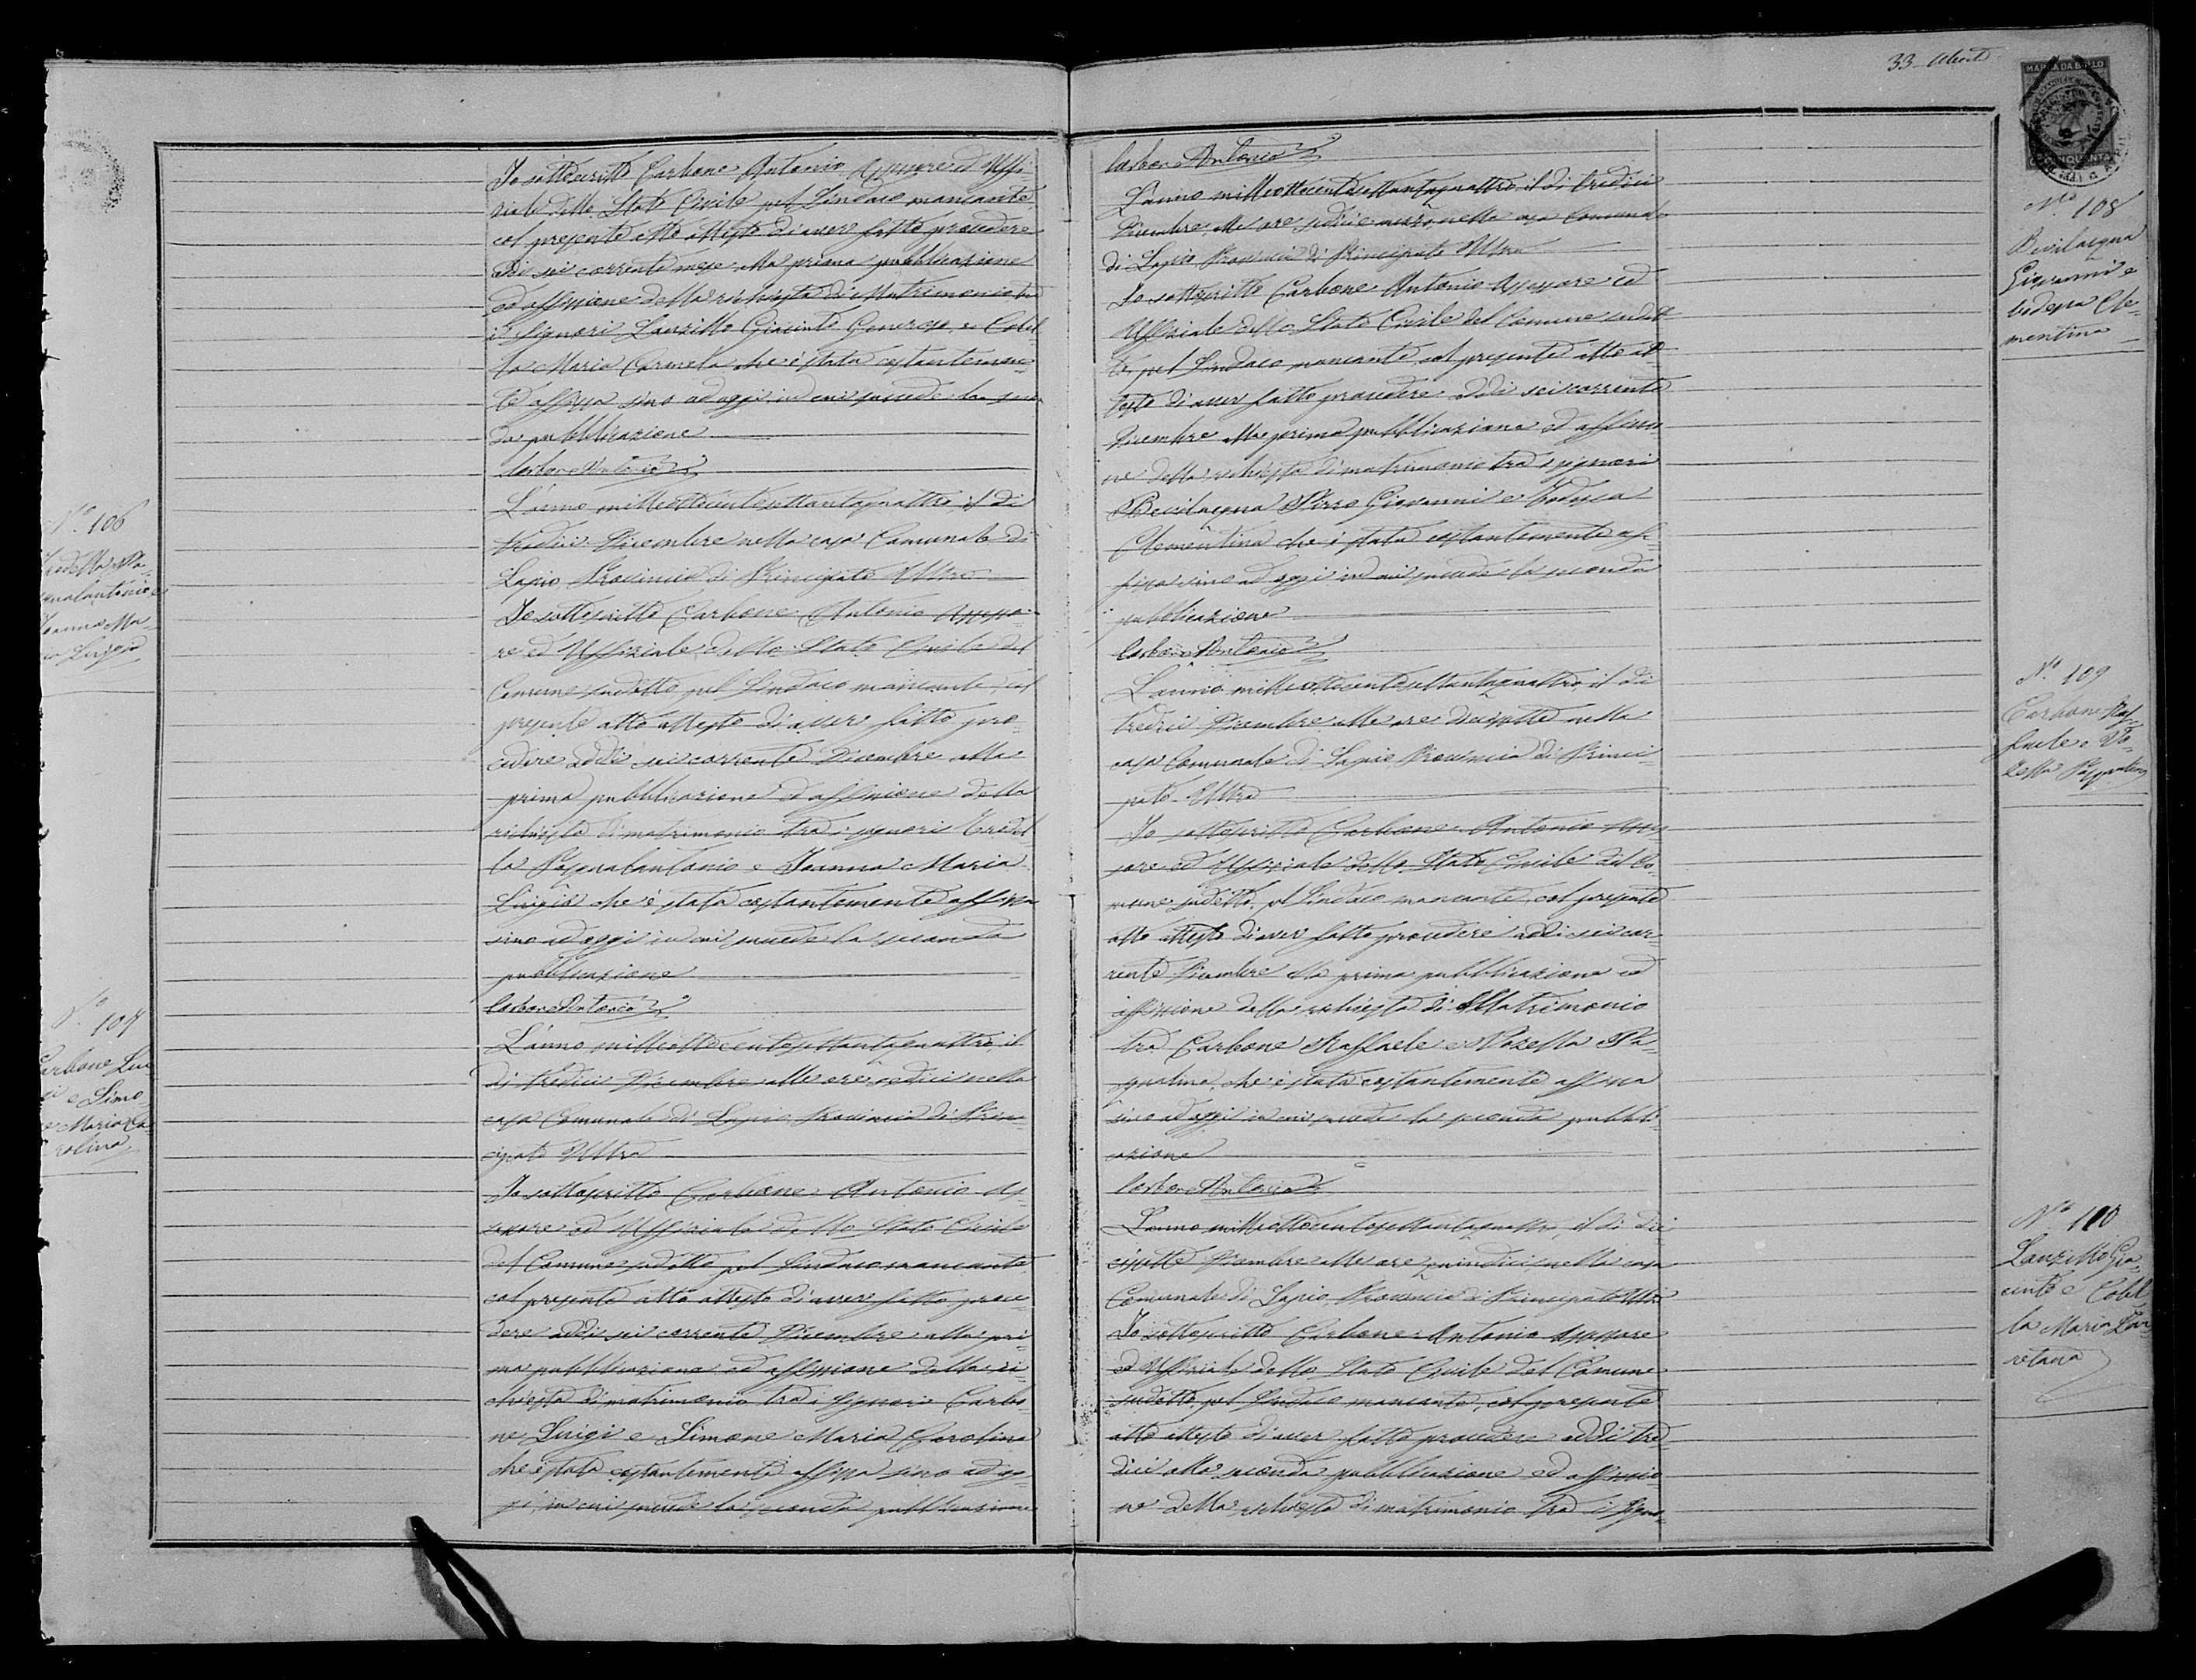 Io sottoscritto Carbone Antonio Assessore ed Uffi
ziale dello Stato Civile pel Sindaco mancante
col presente atto attesto di aver fatto procedere
addì sei corrente mese alla prima pubblicazione
ed affissione della richiesta di Matrimonio tra
i signori Lanzillo Giacinto Generoso e Cobel
la Maria Carmela che è stata costantemen
te affissa sino ad oggi in cui succede la secon
da pubblicazione
Carbone Antonio
No. 106
Tredella Pa
squalantonio e
Joanna Ma
ria Luigia
L'anno milleottocentosettantaquattro il dì
tredici Dicembre nella casa Comunale di
Lapio Provincia di Principato Ultra
Io sottoscritto Carbone Antonio Assesso
re ed Uffiziale dello Stato Civile del
Comune sudetto pel Sindaco mancante, col
presente atto attesto di aver fatto pro
cedere addì sei corrente Dicembre alla
prima pubblicazione ed affissione della
richiesta di matrimonio tra i signori Tredel
la Pasqualantonio e Joanna Maria
Luigia che è stata costantemente affissa
sino ad oggi in cui succede la seconda
pubblicazione
Carbone Antonio
No. 107
Carbone Lui
gi e Simo
ne Maria Ca
rolina
L'anno milleottocentosettantaquattro, il
dì tredici Dicembre alle ore sedici nella
casa Comunale di Lapio Provincia di Prin
cipato Ultra
Io sottoscritto Carbone Antonio As
sessore ed Uffiziale dello Stato Civile
del Comune sudetto pel Sindaco mancante
col presente atto attesto di aver fatto proce
dere addì sei corrente Dicembre alla pri
ma pubblicazione ed affissione della ri
chiesta di matrimonio tra i signori Carbo
ne Luigi e Simone Maria Carolina
che è stata costantemente affissa sino ad og
gi, in cui succede la seconda pubblicazione
33
MARCA DA BOLLO
Carbone Antonio
No. 108
Bevilacqua
Giovanni e
Clementina
L'anno milleottocentosettantaquattro, il dì tredici
Dicembre alle ore sedici nella casa Comunale
di Lapio Provincia di Principato Ultra
Io sottoscritto Carbone Antonio Assessore ed
Uffiziale dello Stato Civile del Comune sudet
to pel Sindaco mancante, col presente atto at
testo di aver fatto procedere addì sei corrente
Dicembre alla prima pubblicazione ed affissio
ne della richiesta di matrimonio tra i signori
Bevilacqua Giovanni e
Clementina che è stata costantemente af
fissa sino ad oggi in cui succede la seconda
pubblicazione
Carbone Antonio
No. 109
Carbone Raf
faele e
Pasqualina
L'anno milleottocentosettantaquattro, il dì
tredici Dicembre alle ore diciasette nella
casa Comunale di Lapio Provincia di Princi
pato Ultra
Io sottoscritto Carbone Antonio Asses
sore ed Uffiziale dello Stato Civile del Co
mune sudetto, pel Sindaco mancante, col presente
atto attesto di aver fatto procedere addì sei cor
rente Dicembre alla prima pubblicazione ed
affissione della richiesta di Matrimonio
tra Carbone Raffaele e Pa
squalina, che è stata costantemente affissa
sino ad oggi in cui succede la seconda pubbli
cazione
Carbone Antonio
No. 110
Lanzillo Gia
cinto e Cobel
la Maria
L'anno milleottocentosettantaquattro, il dì dici
asette Dicembre alle ore quindici nella casa
Comunale di Lapio, Provincia di Principato Ultra
Io sottoscritto Carbone Antonio Assessore
ed Uffiziale dello Stato Civile del Comune
sudetto pel Sindaco mancante, col presente
atto attesto di aver fatto procedere addì tre
dici alla seconda pubblicazione ed affissio
ne della richiesta di matrimonio tra i signo